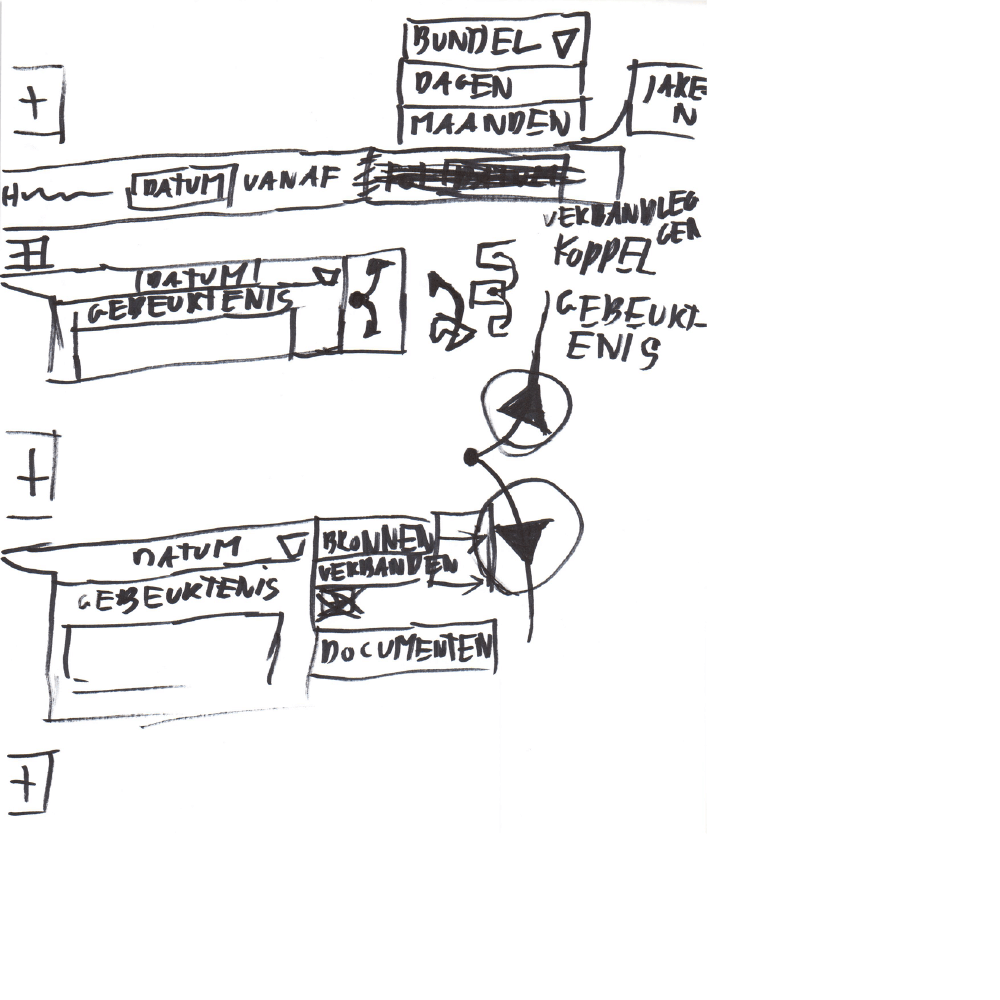 BUNDEL
DAGEN
MAANDEN
JARE
N
DATUM VANAF
VERBAND LEG
GEN
KOPPEL
DATUM
GEBEURTENIS
GEBEURT-
ENIS
DATUM
GEBEURTENIS
BRONNEN
VERBANDEN
DOCUMENTEN